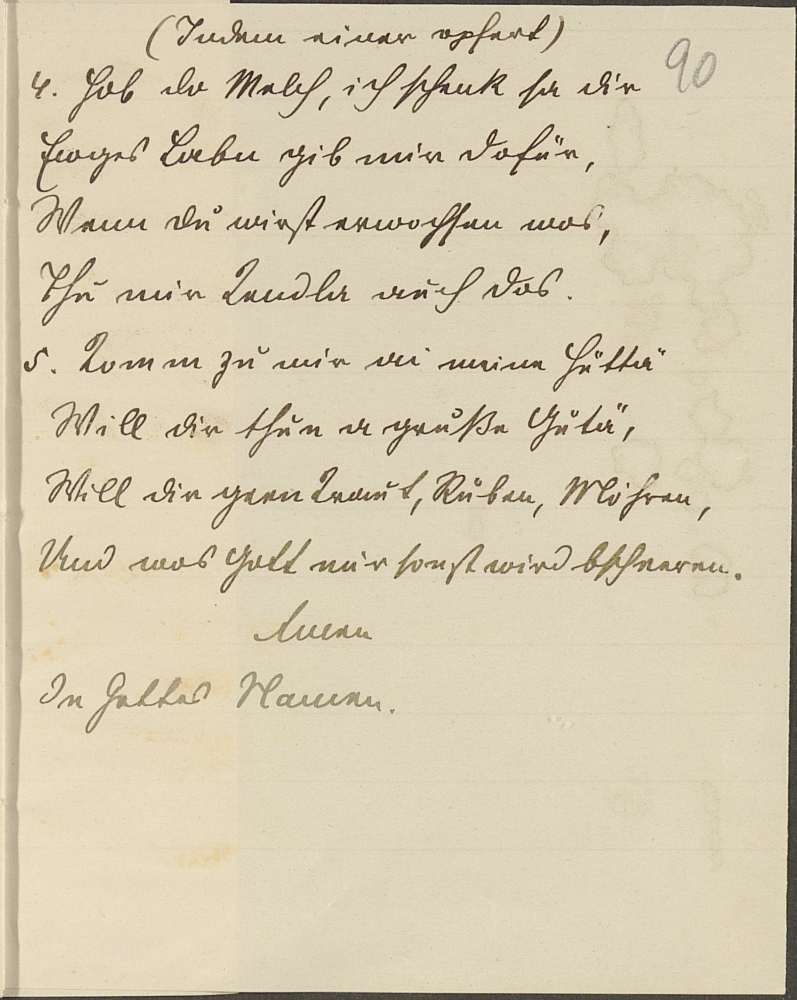 (Indem einer opfert)
90
4. Hob do Melch, ich schenk sa dir
Ewges Labn gib mir dofür,
Wenn du wirst erwochsen wos,
Thu mir Kendla auch dos.
5. Komm zu mir ai meine Hüttä
Will dir thun a gruße Gütä,
Will dir geen Kraut, Rüben, Möhren,
Und wos Gott mir sonst wird bscheeren.
Amen
In Gottes Namen.